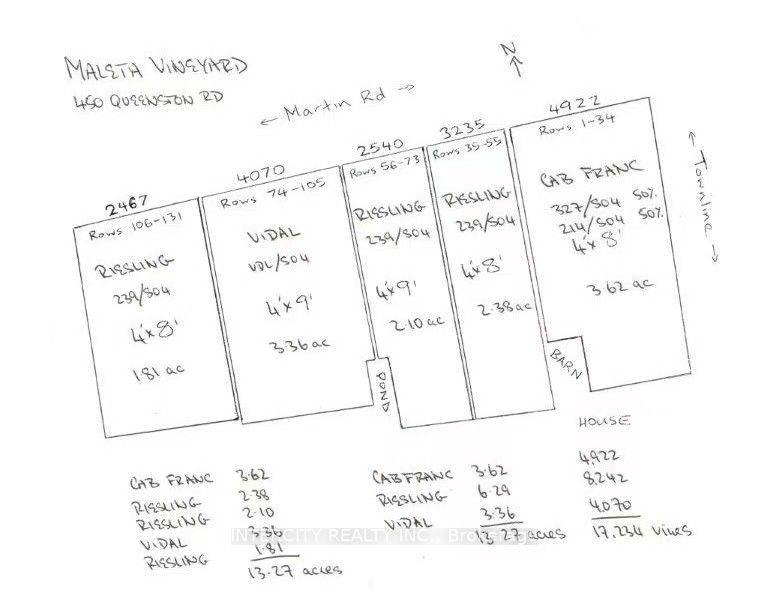 MALETA VINEYARD
450 QUEENSTON RD
N
← Martin Rd →
← Townline →
2467
Rows 106-131
RIESLING
239/SO4
4'x8'
1.81 ac
4070
Rows 74-105
VIDAL
VDL/SO4
4'x9'
3.36 ac
2540
Rows 56-73
RIESLING
239/SO4
4'x9'
2.10 ac
POND
3235
Rows 35-55
RIESLING
239/SO4
4'x8'
2.38 ac
4922
Rows 1-34
CAB FRANC
327/SO4 50%
214/SO4 50%
4'x8'
3.62 ac
BARN
HOUSE
CAB FRANC 3.62
RIESLING 2.38
RIESLING 2.10
VIDAL 3.36
RIESLING 1.81
13.27 acres
CAB FRANC 3.62
RIESLING 6.29
VIDAL 3.36
13.27 acres
4,922
8,242
4,070
17,234 Vines
INTERCITY REALTY INC., Brokerage